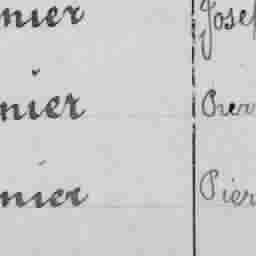 nier Josef
nier Pierr
nier Pierr